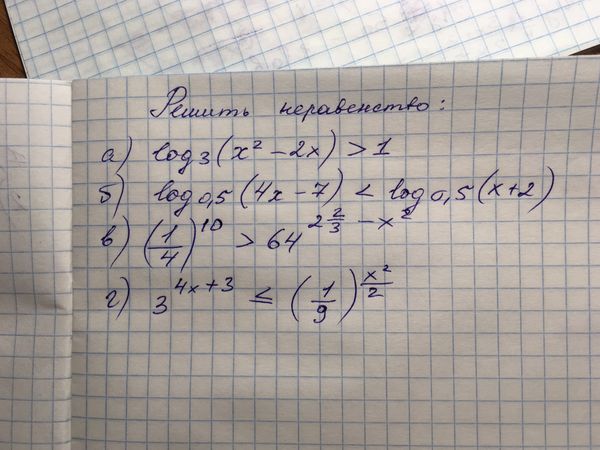 Решить неравенство:
а) log₃(x² − 2x) > 1
б) log₀,₅(4x − 7) < log₀,₅(x+2)
в) (1/4)¹⁰ > 64^(2 2/3 − x²)
г) 3^(4x+3) ≤ (1/9)^(x²/2)